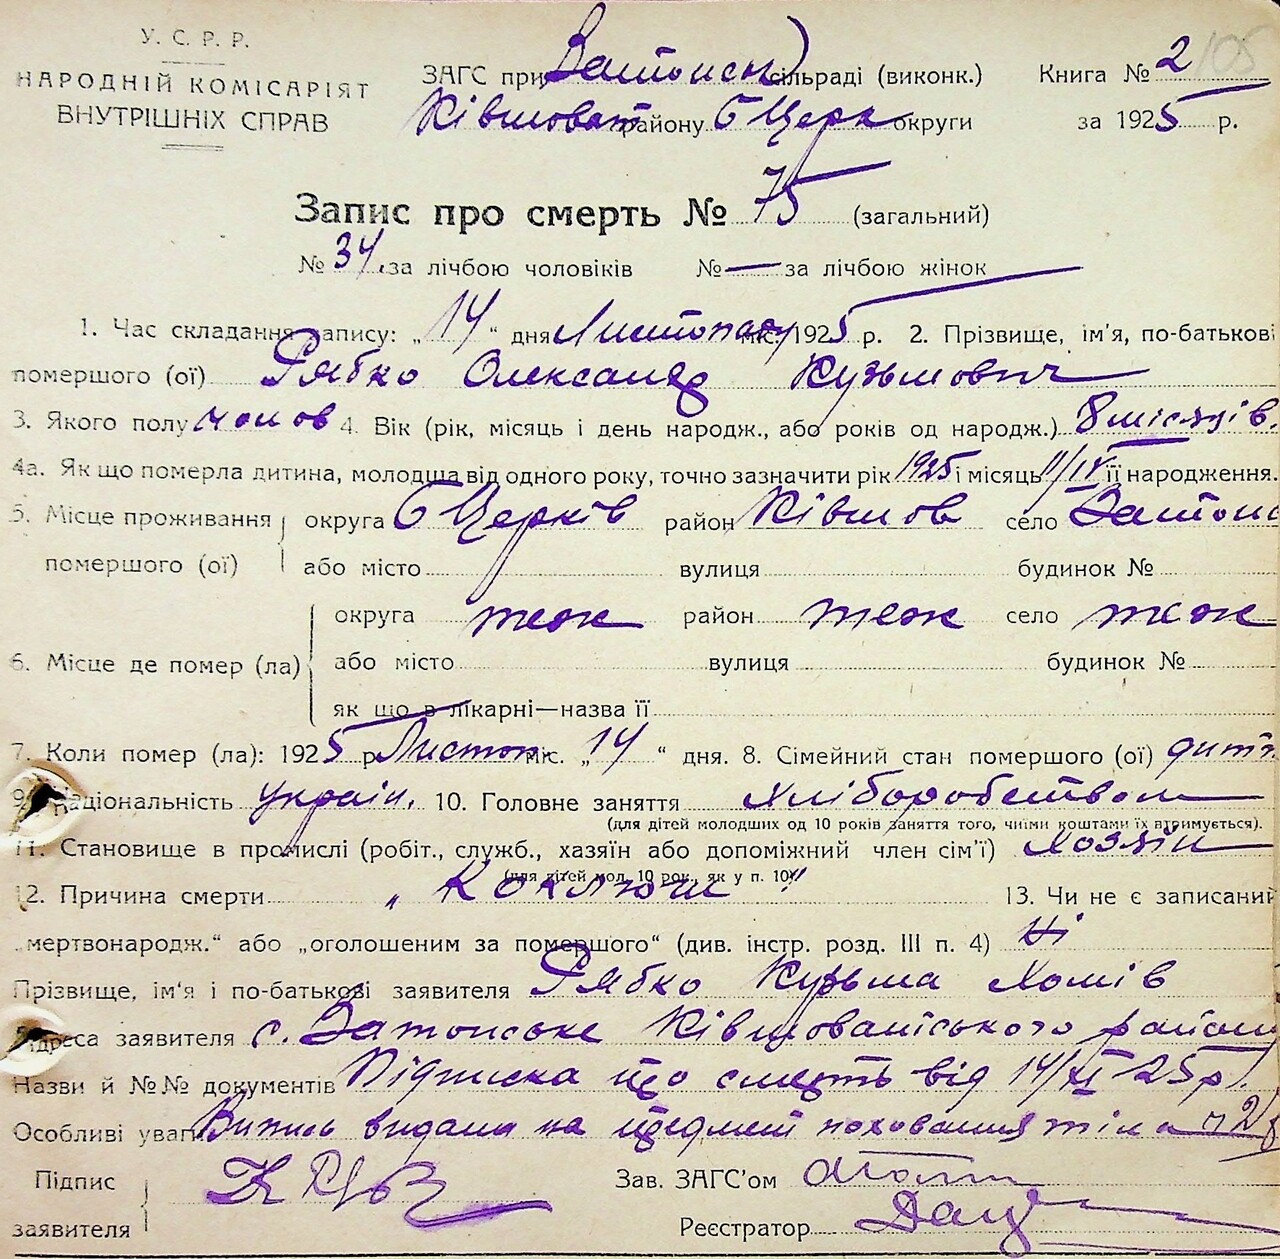 У. С. Р. Р.
НАРОДНІЙ КОМІСАРІЯТ
ВНУТРІШНІХ СПРАВ
ЗАГС при Затонськ сільраді (виконк.) Книга № 2 105
Ківшоват району Б Церк округи за 1925 р.
Запис про смерть № 75 (загальний)
№ 34 за лічбою чоловіків № — за лічбою жінок
1. Час складання запису: „14“ дня Листопад міс. 1925 р. 2. Прізвище, ім'я, по-батькові
помершого (ої) Рябко Олександ Кузьмович
3. Якого полу чолов 4. Вік (рік, місяць і день народж., або років од народж.) 8 місяців.
4а. Як що померла дитина, молодша від одного року, точно зазначити рік 1925 і місяць 11/IV її народження.
5. Місце проживання округа Б Церків район Ківшов село Затонс
помершого (ої) або місто вулиця будинок №
округа теж район теж село теж
6. Місце де помер (ла) або місто вулиця будинок №
як що в лікарні—назва її
7. Коли помер (ла): 1925 р. Листоп. міс. „14“ дня. 8. Сімейний стан помершого (ої) дит.
9. Національність україн. 10. Головне заняття хліборобством
(для дітей молодших од 10 років заняття того, чиїми коштами їх втримується).
11. Становище в промислі (робіт., служб., хазяїн або допоміжний член сім'ї) хозяїн
(для дітей мол. 10 рок., як у п. 10)
12. Причина смерти „Коклюш“ 13. Чи не є записаний
„мертвонародж.“ або „оголошеним за помершого“ (див. інстр. розд. III п. 4) Ні
Прізвище, ім'я і по-батькові заявителя Рябко Кузьма Хомів
Адреса заявителя с. Затонське Ківшоватського району
Назви й №№ документів Підписка що смерть від 14/XI-25 р.
Особливі уваги Випись видана на предмет поховання тіла
Підпис Зав. ЗАГС'ом
заявителя Реєстратор